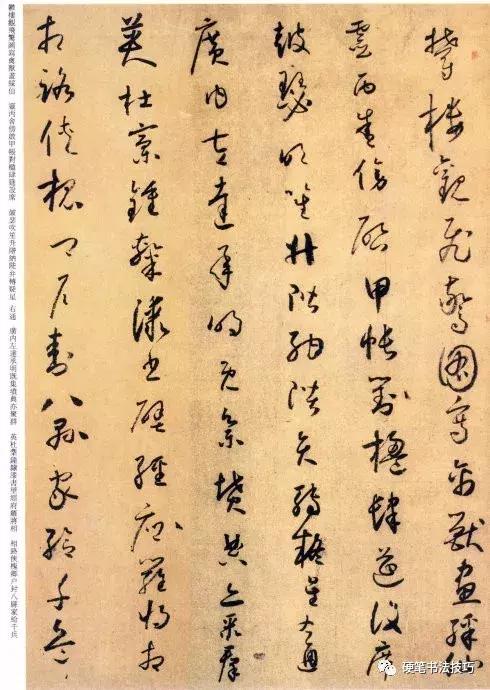 鬱樓觀飛驚圖寫禽獸畫綵仙
靈丙舍傍啟甲帳對楹肆筵設席
鼓瑟吹笙升階納陛弁轉疑星右通
廣內左達承明既集墳典亦聚群
英杜稾鍾隸漆書壁經府羅將相
相路俠槐卿戶封八縣家給千兵
鬱樓觀飛驚圖寫禽獸畫綵仙 靈丙舍傍啟甲帳對楹肆筵設席 鼓瑟吹笙升階納陛弁轉疑星 右通 廣內左達承明既集墳典亦聚群 英杜稾鍾隸漆書壁經府羅將相 相路俠槐卿戶封八縣家給千兵
硬笔书法技巧